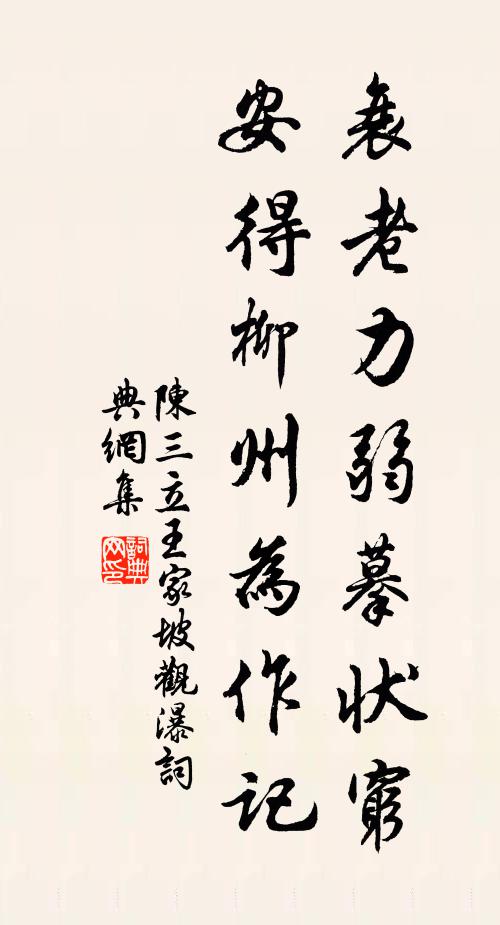 衰老力弱摹狀窮
安得柳州為作記
陳三立王家坡觀瀑詞
典網集
詞典网印